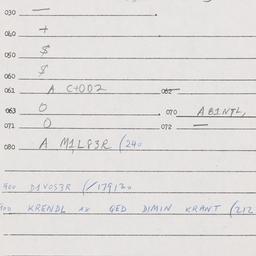 030 —
040 +
050 $
060 $
061 A C+002 062
063 O 070 AB1NTL,
071 O 072 —
080 A M1,L83R (240
900 D1VOS3R (/179120
900 KRENDL AX QED DIMIN KRANT (212